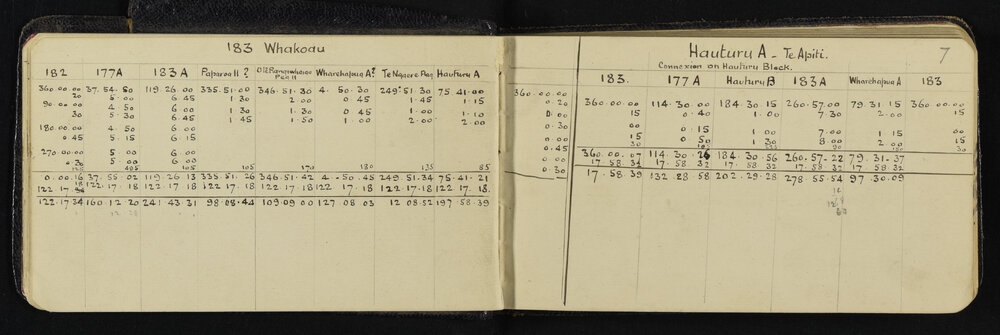 183 Whakoau
182 177A 183A Paparoa II ? Old Rangiwheao Peg II Wharehapua A? Te Ngaere Peg Hauturu A
360.00.00 37.54.50 119.26.00 335.51.00 346.51.30 4.50.30 249.51.30 75.41.00
20 5.00 6.45 1.30 2.00 0.45 1.45 1.15
90.00.00 4.50 6.00 1.30 1.30 0.45 1.30 1.10
30 5.30 6.45 1.45 1.50 1.00 2.00 2.00
180.00.00 4.50 6.00
0.45 5.15 6.15
270.00.00 5.00 6.00
0.30 5.00 6.00
405 105 105 170 180 135 85
0.00.16 37.55.02 119.26.13 335.51.26 346.51.42 4.50.45 249.51.34 75.41.21
122.17.18 122.17.18 122.17.18 122.17.18 122.17.18 122.17.18 122.17.18 122.17.18
122.17.34 160.12.20 241.43.31 98.08.44 109.09.00 127.08.03 12.08.52 197.58.39
Hauturu A - Te Apiti. 7
Connexion on Hauturu Block.
183. 177A Hauturu B 183A Wharehapua A 183
360.00.00
0.20 360.00.00 114.30.00 184.30.15 260.57.00 79.31.15 360.00.00
0.00 15 0.40 1.00 7.30 2.00 15
0.30
0.00 00 0.15 1 00 7.00 1 15 00
0.45 15 0.50 1 30 8.00 2 00 15
0.00 360.00.07 114.30.26 184.30.56 260.57.22 79.31.37
0.30 17.58.32 17.58.32 17.58.32 17.58.32 17.58.32
17.58.39 132.28.58 202.29.28 278.55.54 97.30.09